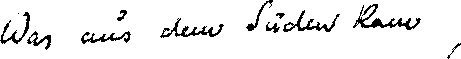 Was aus dem Süden kam,